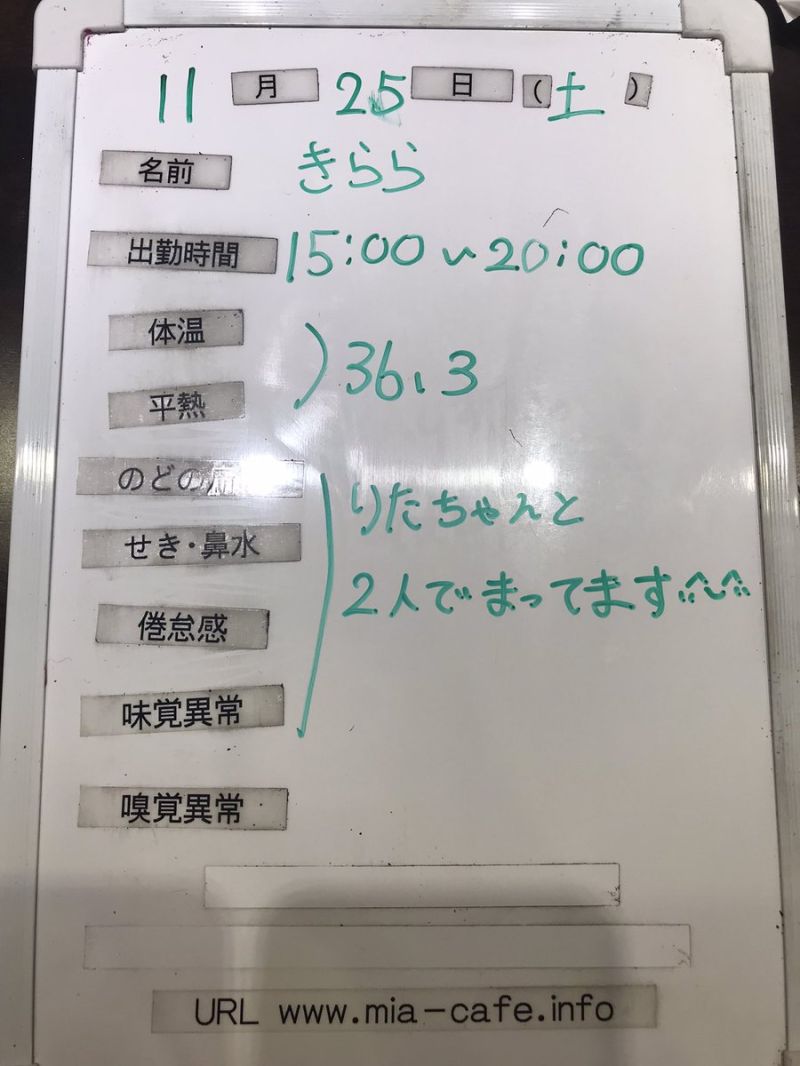 11 月 25 日 (土)
名前 きらら
出勤時間 15:00~20:00
体温
平熱 36.3
のどの
せき・鼻水 りたちゃんと
倦怠感 2人でまってます
味覚異常
嗅覚異常
URL www.mia-cafe.info